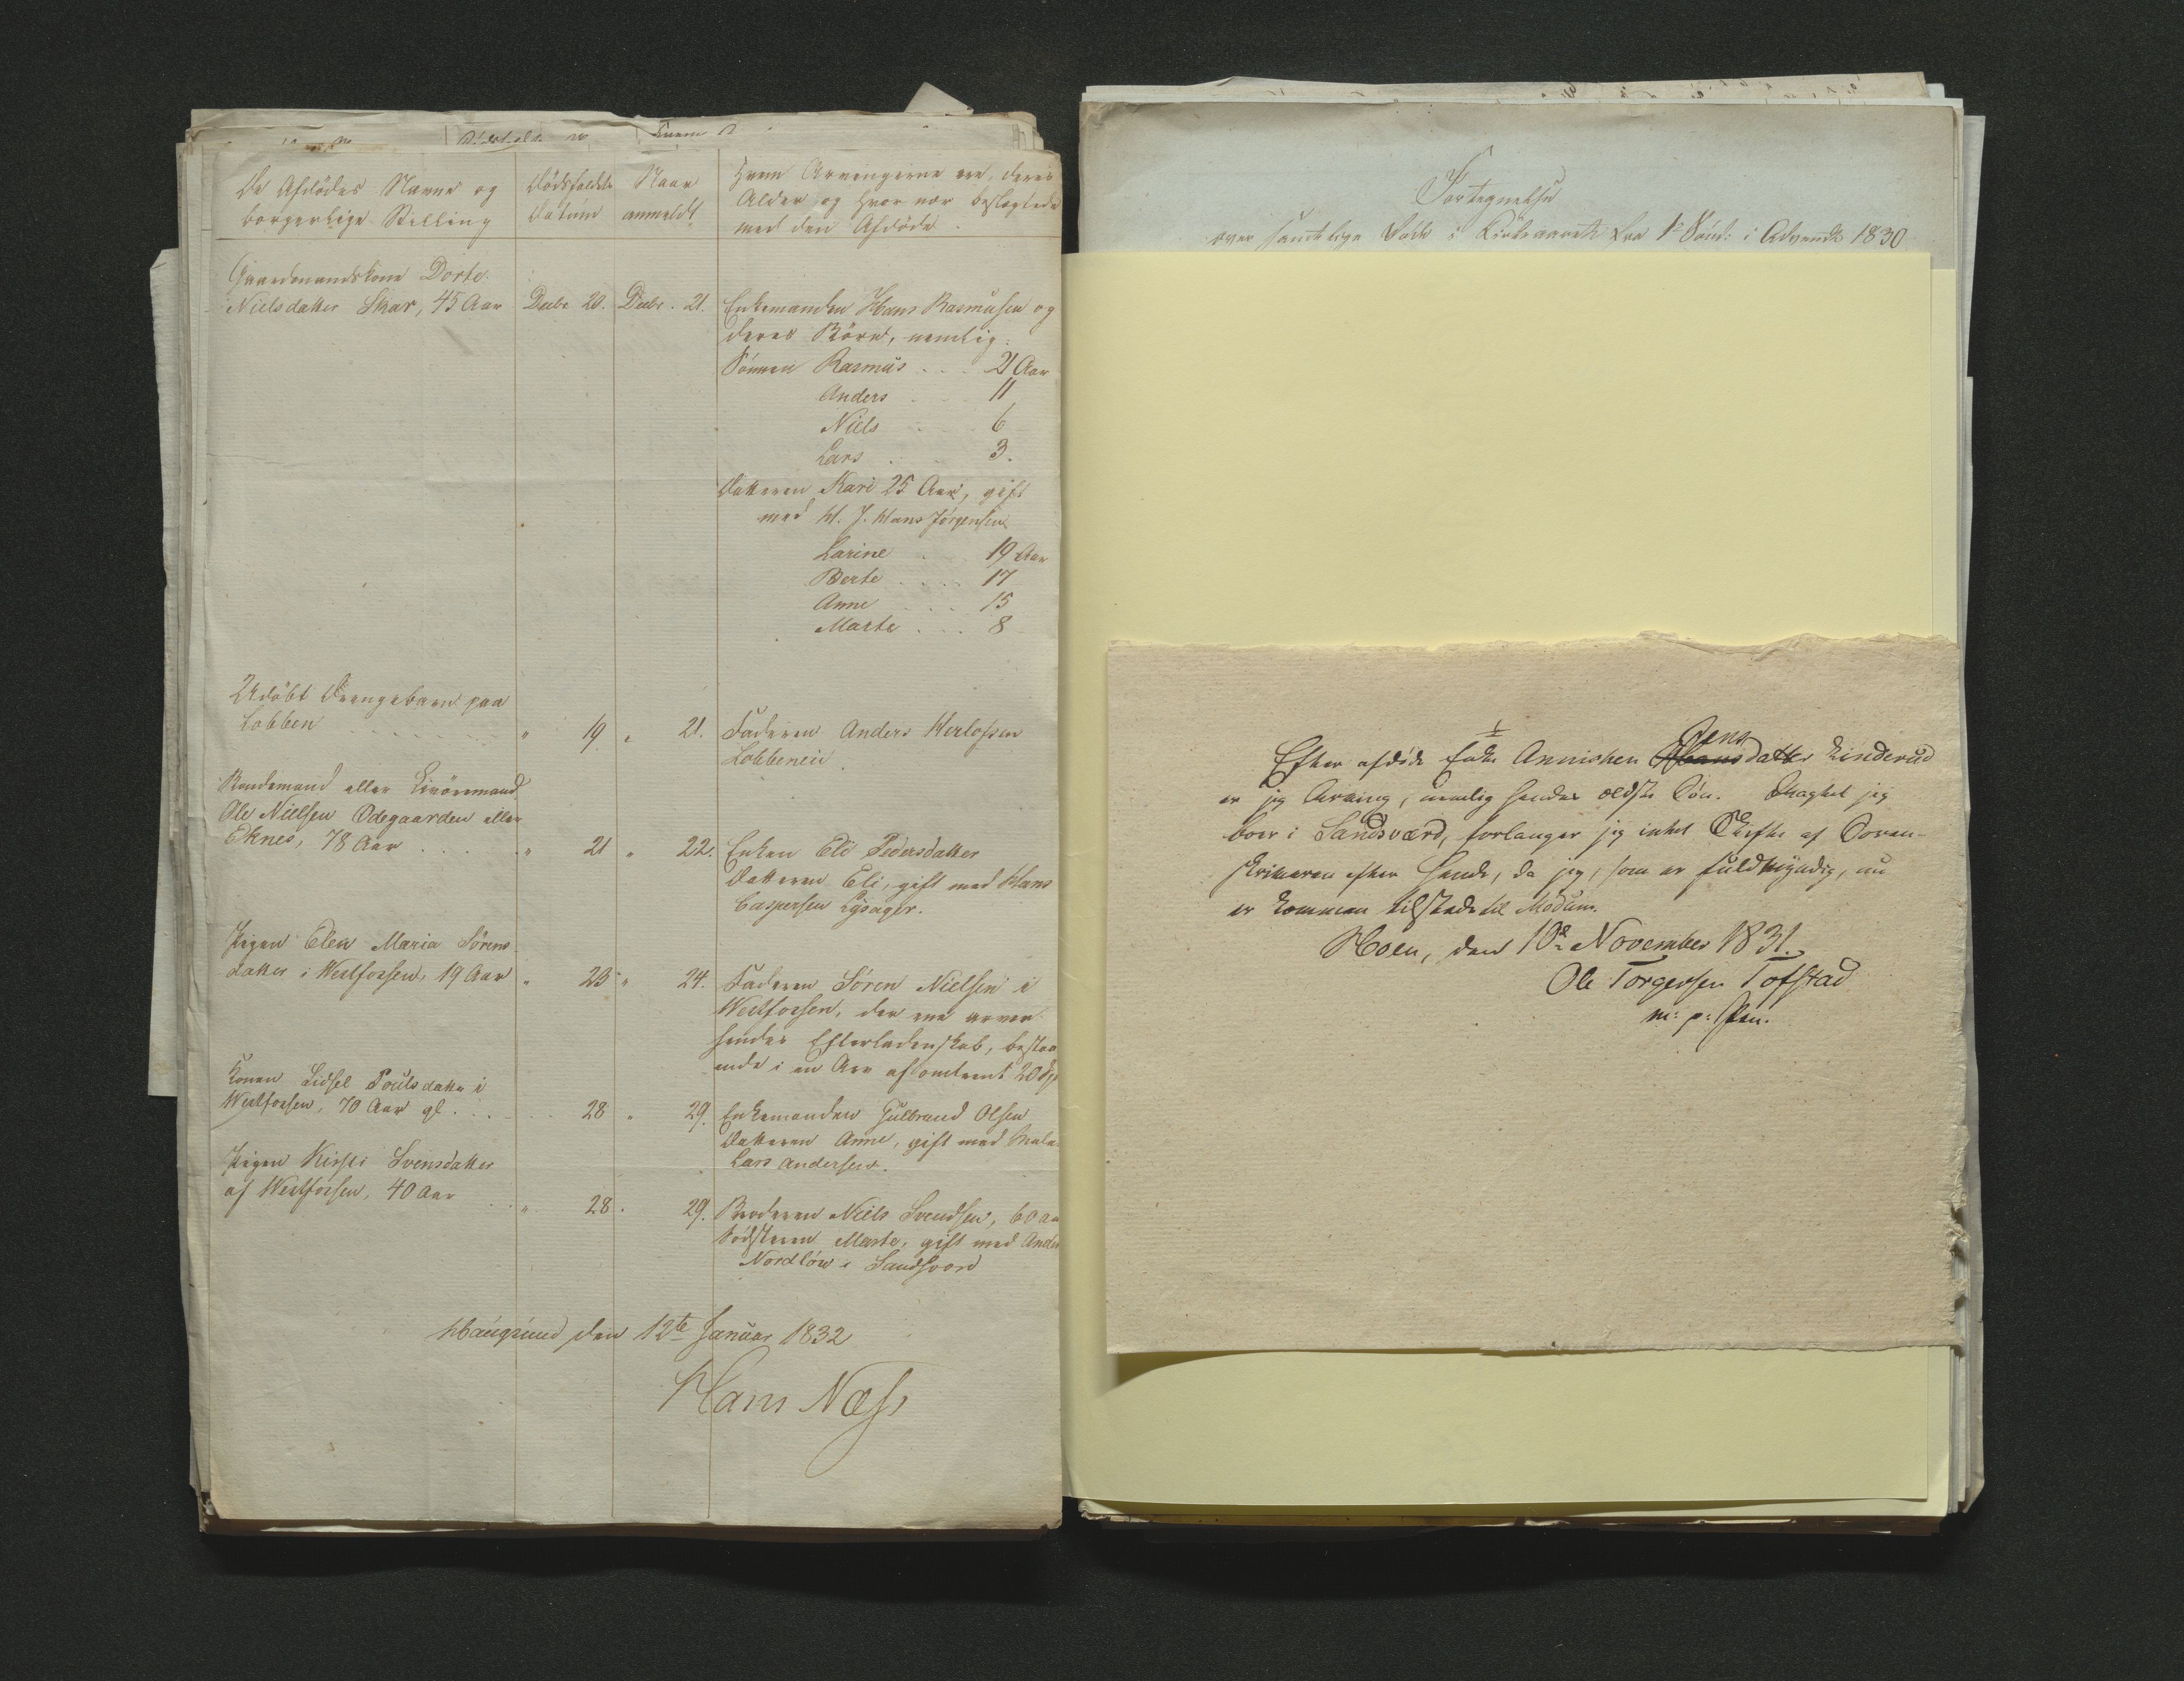 De Afdödes Navne og
borgerlige Stilling
Dödsfaldets
Datum
Naar
anmeldt
Hvem Arvingerne ere, deres
Alder, og hvor nær beslægtede
med den Afdöde.
Gaardmandskone Dorte
Nielsdatter Skar, 45 Aar
Decbr 20.
Decbr. 21.
Enkemanden Hans Rasmusen og
deres Börn, nemlig:
Sönnen Rasmus . . . 21 Aar
Anders . . 11
Niels . . 6
Lars . . 3.
Datteren Kari 25 Aar, gift
med H. J. Hans Jörgensen
Karine . . 19 Aar
Berte . . . . 17
Anne . . . 15
Marte . . . 8
Udöbt Drengebarn paa
Lobben . . . . . . . . " 19 " 21.
Faderen Anders Herlofsen
Lobbeneie
Kaudemand eller Livöremand
Ole Nielsen Ödegaarden eller
Eknes, 78 Aar . . . . " 21 " 22.
Enken Eli Pedersdatter
Datteren Eli, gift med Hans
Caspersen Lysager.
Pigen Elen Maria Sörens
datter i Vestfossen, 19 Aar " 23 " 24.
Faderen Sören Nielsen i
Westfossen, der ene arver
hendes Efterladenskab, bestaa
ende i en Arv af omtrent 20 Spd
Konen Sidsel Poulsdatter i
Westfossen, 70 Aar gl. . . . . 28 " 29.
Enkemanden Gulbrand Olsen
Datteren Anne, gift med Maler
Lars Andersen.
Pigen Kirsti Svensdatter
af Westfossen, 40 Aar . . " 28 . 29.
Broderen Niels Svendsen, 60 Aa
Södsteren Marte, gift med Ander
Nordlöw i Sandsvord
Haugsund den 12te Januar 1832
Hans Næss
Fortegnelse
over samtlige Döde i Kirkeaaret fra 1e Sönd: i Advendt 1830
Efter afdöde Enke Annichen Hansdatter Jens Linderud
er jeg Arving, nemlig hendes ældste Sön. Uagtet jeg
boer i Sandsværd, forlanger jeg intet Skifte af Soren-
skriveren efter hende, da jeg, som er fuldmyndig, nu
er kommen tilstede til Modum.
Hoen, den 10de November 1831.
Ole Torgersen Tofstad
m: p: Pen.